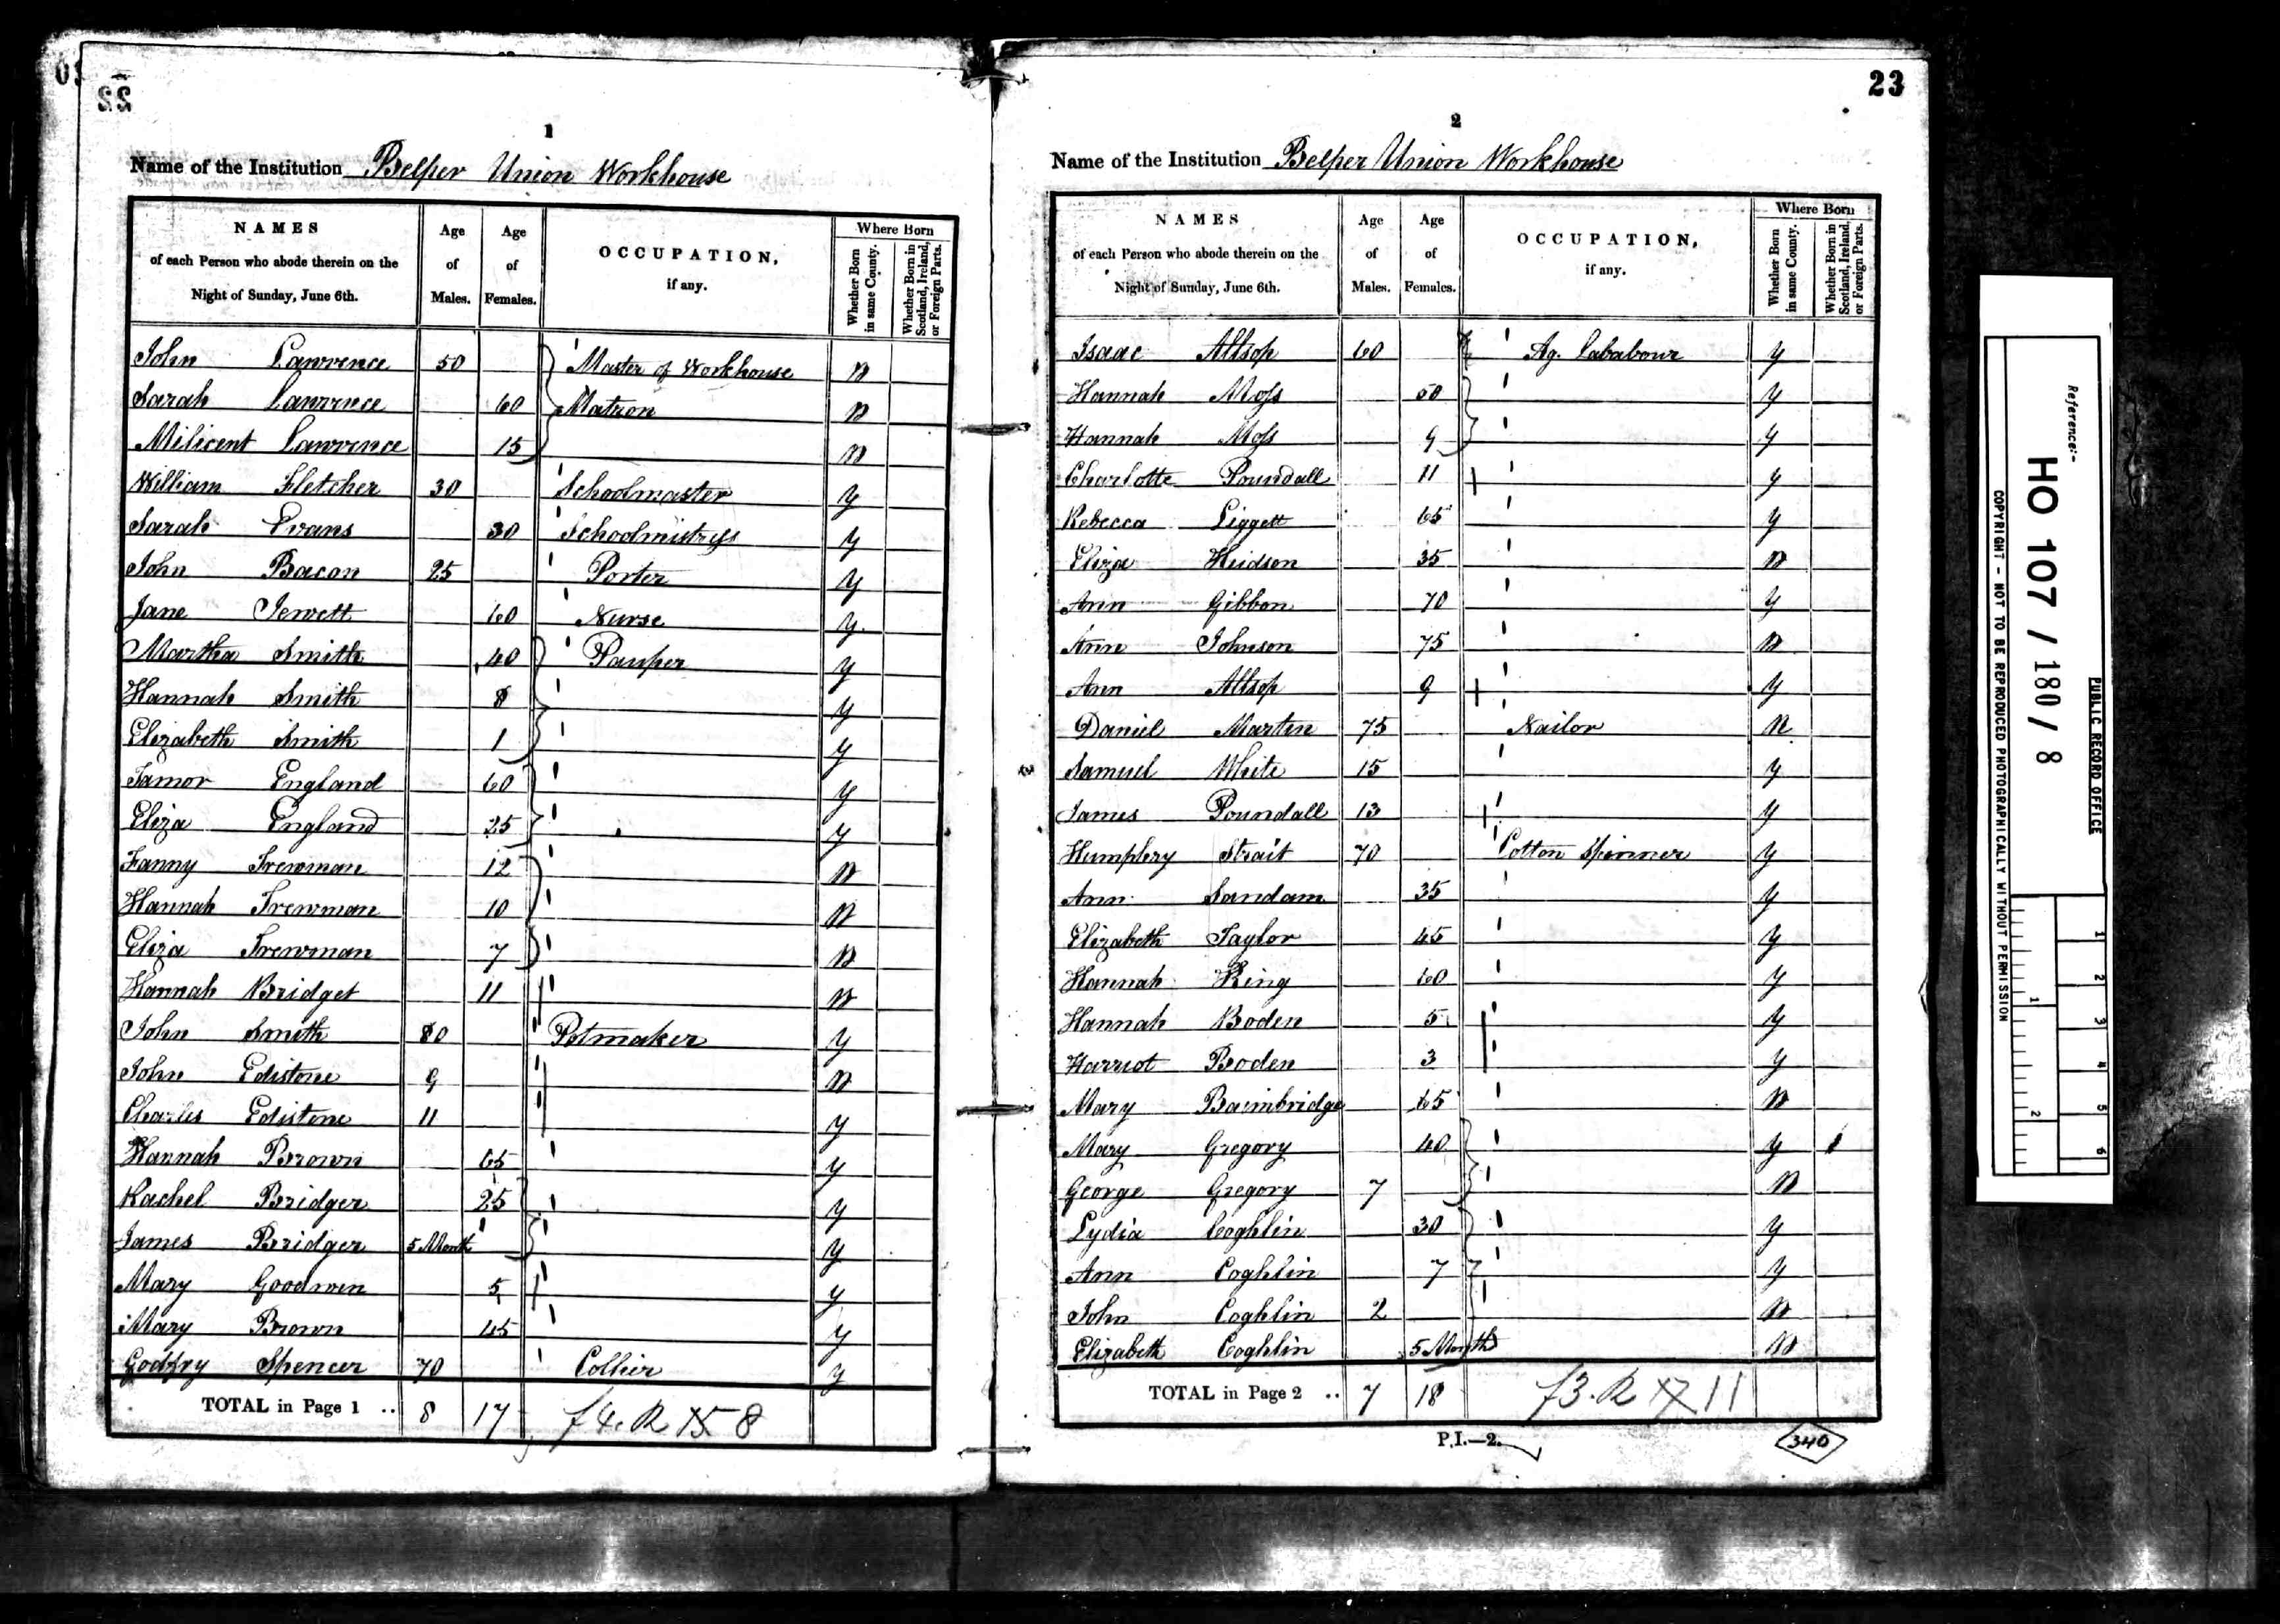 22
1
Name of the Institution Belper Union Workhouse
NAMES
of each Person who abode therein on the
Night of Sunday, June 6th.
Age of Males.
Age of Females.
OCCUPATION,
if any.
Where Born
Whether Born in same County.
Whether Born in Scotland, Ireland, or Foreign Parts.
John Lawrence 50 Master of Workhouse N
Sarah Lawrence 60 Matron N
Milicent Lawrence 15 N
William Fletcher 30 Schoolmaster y
Sarah Evans 30 Schoolmistress y
John Bacon 25 Porter y
Jane Jewett 60 Nurse y
Martha Smith 40 Pauper y
Hannah Smith 8 y
Elizabeth Smith 1 y
Tamor England 60 y
Eliza England 25 y
Fanny Trewman 12 N
Hannah Trewman 10 N
Eliza Trewman 7 N
Hannah Bridget 11 N
John Smith 80 Potmaker y
John Edistone 9 N
Charles Edistone 11 y
Hannah Brown 65 y
Rachel Bridger 25 y
James Bridger 5 Month y
Mary Goodwin 5 y
Mary Brown 45 y
Godfry Spencer 70 Collier y
TOTAL in Page 1 .. 8 17
23
2
Name of the Institution Belper Union Workhouse
NAMES
of each Person who abode therein on the
Night of Sunday, June 6th.
Age of Males.
Age of Females.
OCCUPATION,
if any.
Where Born
Whether Born in same County.
Whether Born in Scotland, Ireland, or Foreign Parts.
Isaac Alltop 60 Ag. Lababour y
Hannah Moss 50 y
Hannah Moss 9 y
Charlotte Poundall 11 y
Rebecca Liggett 65 y
Eliza Hudson 35 N
Ann Gibbon 70 y
Ann Johnson 75 N
Ann Alltop 9 y
Daniel Martin 75 Nailor N
Samuel White 15 y
James Poundall 13 y
Humphry Strait 70 Cotton Spinner y
Ann Sandam 35 y
Elizabeth Taylor 45 y
Hannah King 60 y
Hannah Boden 5 y
Harriot Boden 3 y
Mary Bainbridge 65 N
Mary Gregory 40 y
George Gregory 7 N
Lydia Coghlin 30 y
Ann Coghlin 7 y
John Coghlin 2 N
Elizabeth Coghlin 5 Month N
TOTAL in Page 2 .. 7 18
P.I.—2.
340
Reference:-
HO 107 / 180 / 8
PUBLIC RECORD OFFICE
COPYRIGHT - NOT TO BE REPRODUCED PHOTOGRAPHICALLY WITHOUT PERMISSION
1 2 3 4 5 6
1 2